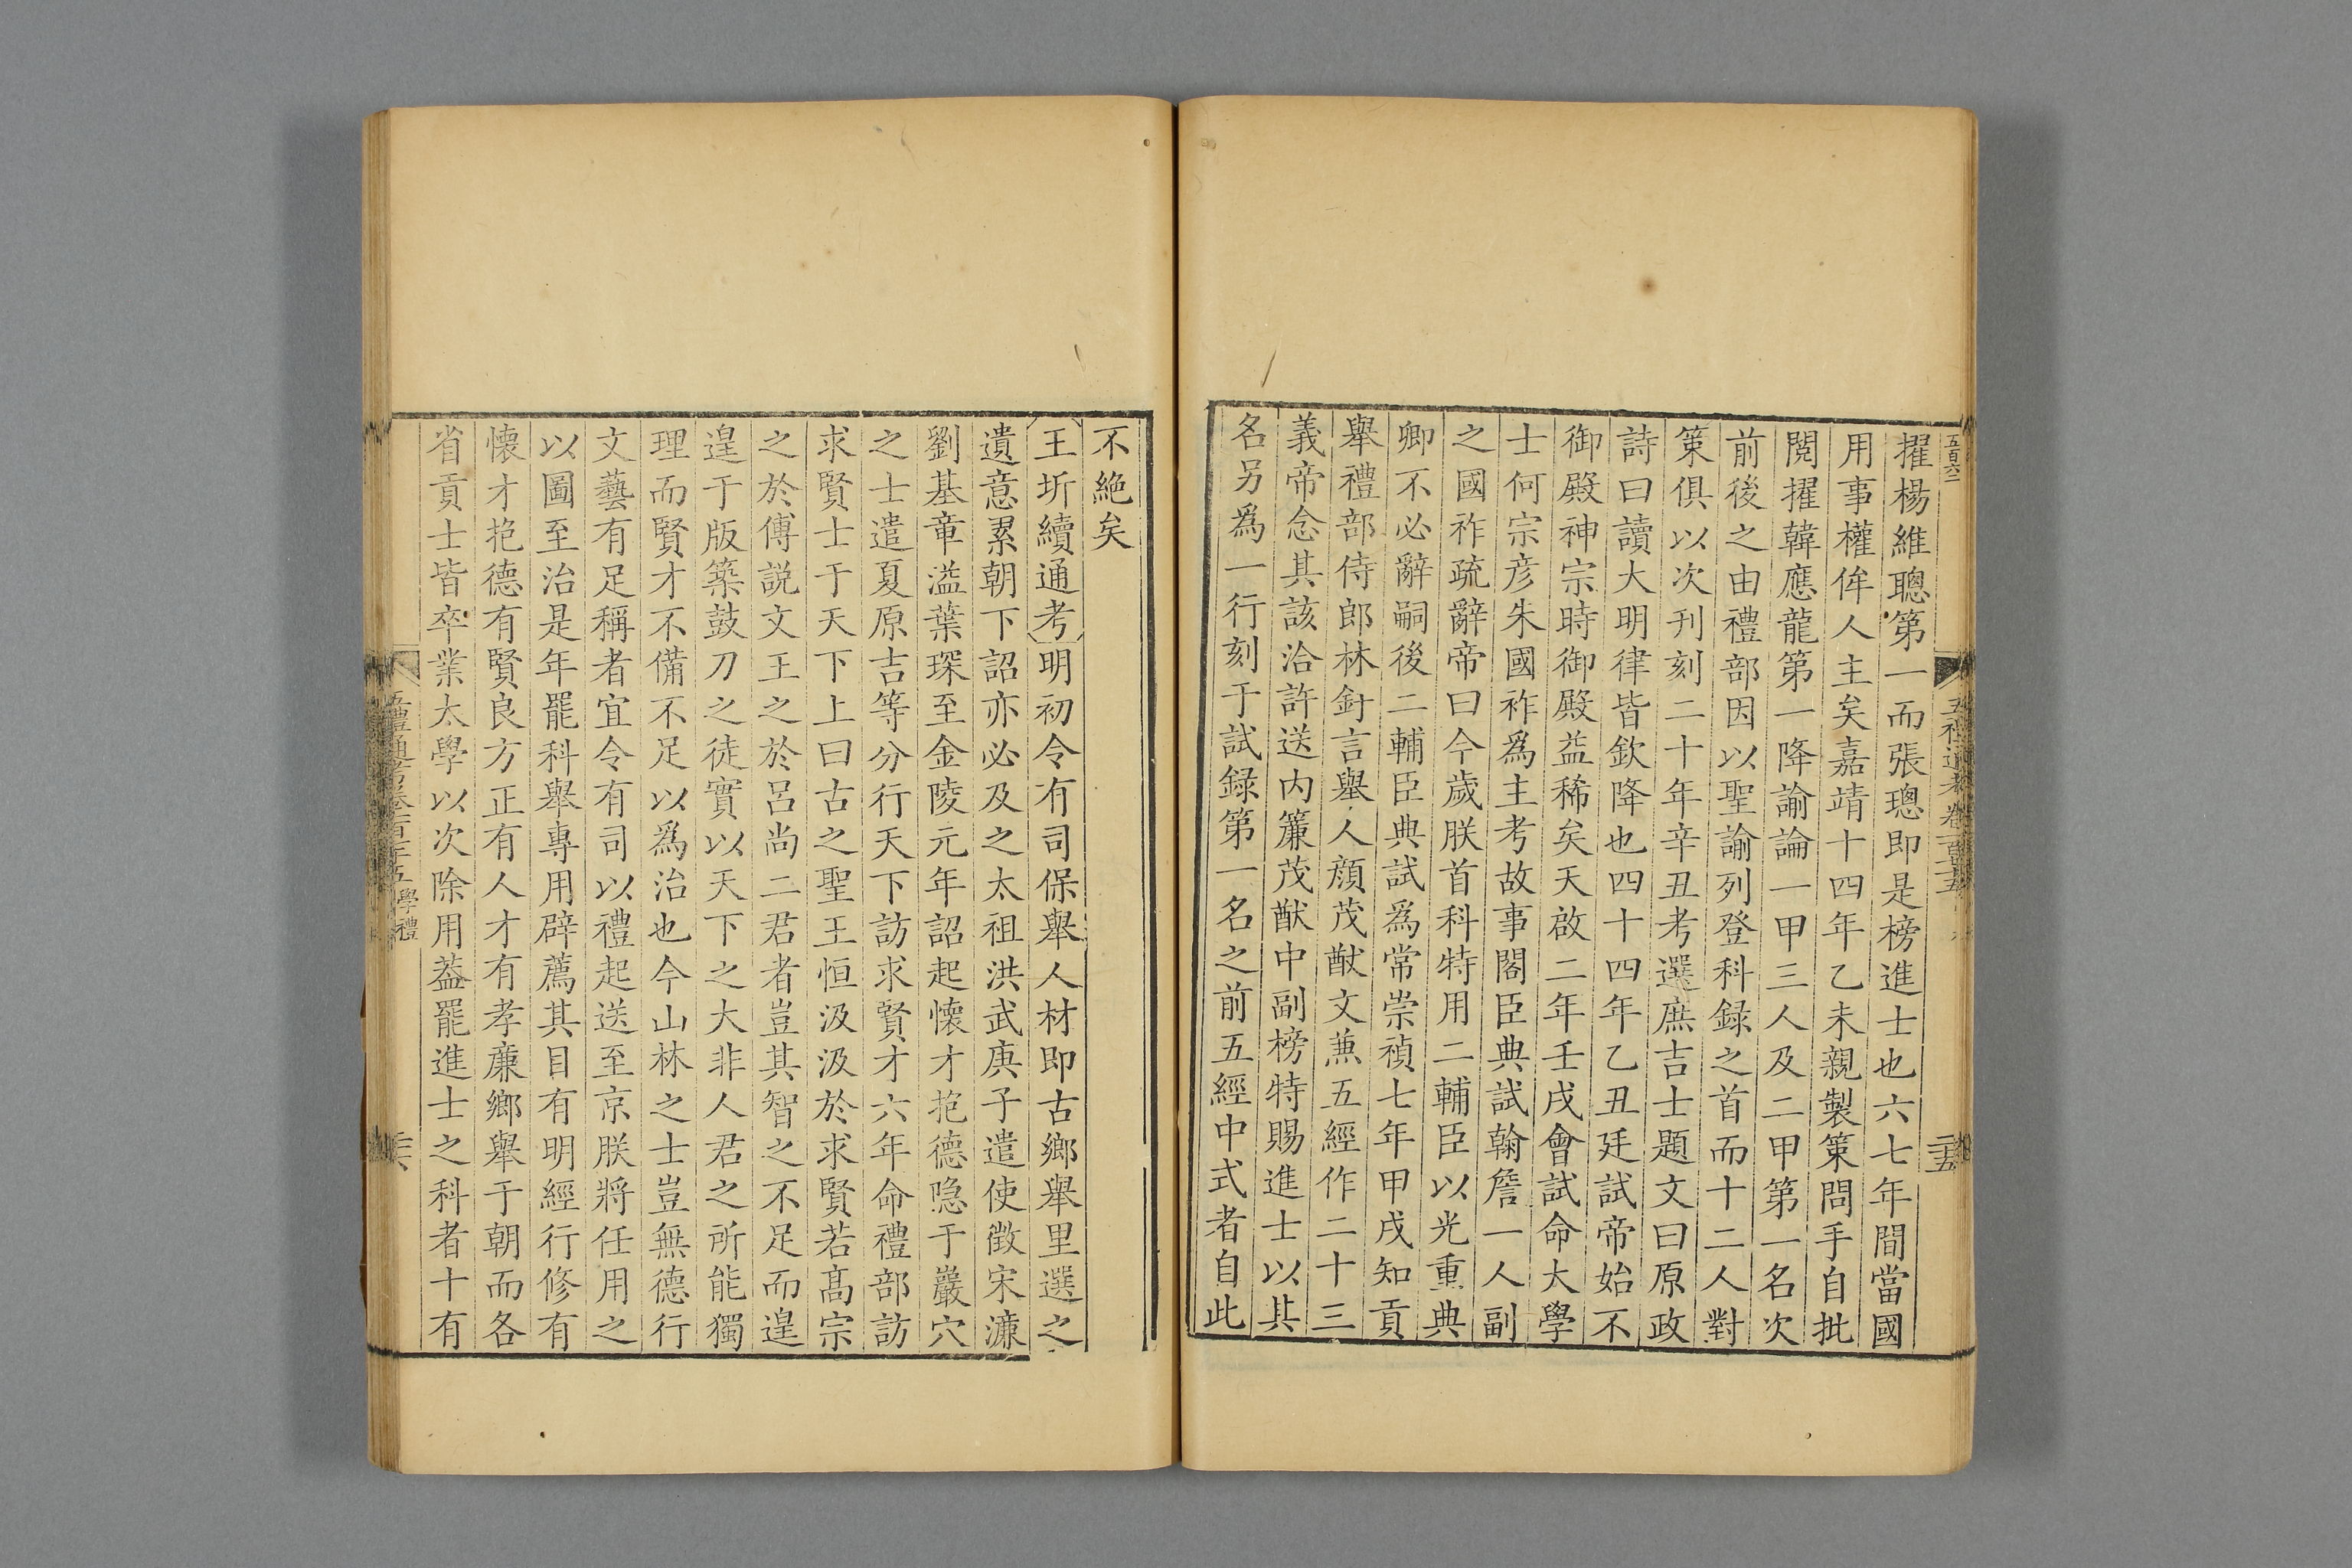 擢楊維聰第一而張璁即是榜進士也六七年間當國
用事權侔人主矣嘉靖十四年乙未親製策問手自批
閲擢韓應龍第一降諭論一甲三人及二甲第一名次
前後之由禮部因以聖諭列登科録之首而十二人對
策俱以次刊刻二十年辛丑考選庶吉士題文曰原政
詩曰讀大明律皆欽降也四十四年乙丑廷試帝始不
御殿神宗時御殿益稀矣天啟二年壬戌會試命大學
士何宗彦朱國祚爲主考故事閣臣典試翰詹一人副
之國祚疏辭帝曰今歲朕首科特用二輔臣以光重典
卿不必辭嗣後二輔臣典試爲常崇禎七年甲戌知貢
舉禮部侍郎林釬言舉人顔茂猷文兼五經作二十三
義帝念其該洽許送内簾茂猷中副榜特賜進士以其
名另爲一行刻于試録第一名之前五經中式者自此
不絶矣
王圻續通考明初令有司保舉人材即古鄉舉里選之
遺意累朝下詔亦必及之太祖洪武庚子遣使徵宋濂
劉基章溢葉琛至金陵元年詔起懷才抱德隐于巖穴
之士遣夏原吉等分行天下訪求賢才六年命禮部訪
求賢士于天下上曰古之聖王恒汲汲於求賢若髙宗
之於傅説文王之於吕尚二君者豈其智之不足而遑
遑于版築鼓刀之徒實以天下之大非人君之所能獨
理而賢才不備不足以爲治也今山林之士豈無德行
文藝有足稱者宜令有司以禮起送至京朕將任用之
以圖至治是年罷科舉專用辟薦其目有明經行修有
懷才抱德有賢良方正有人才有孝亷鄉舉于朝而各
省貢士皆卒業太學以次除用葢罷進士之科者十有
五禮通考卷一百七十五 學禮